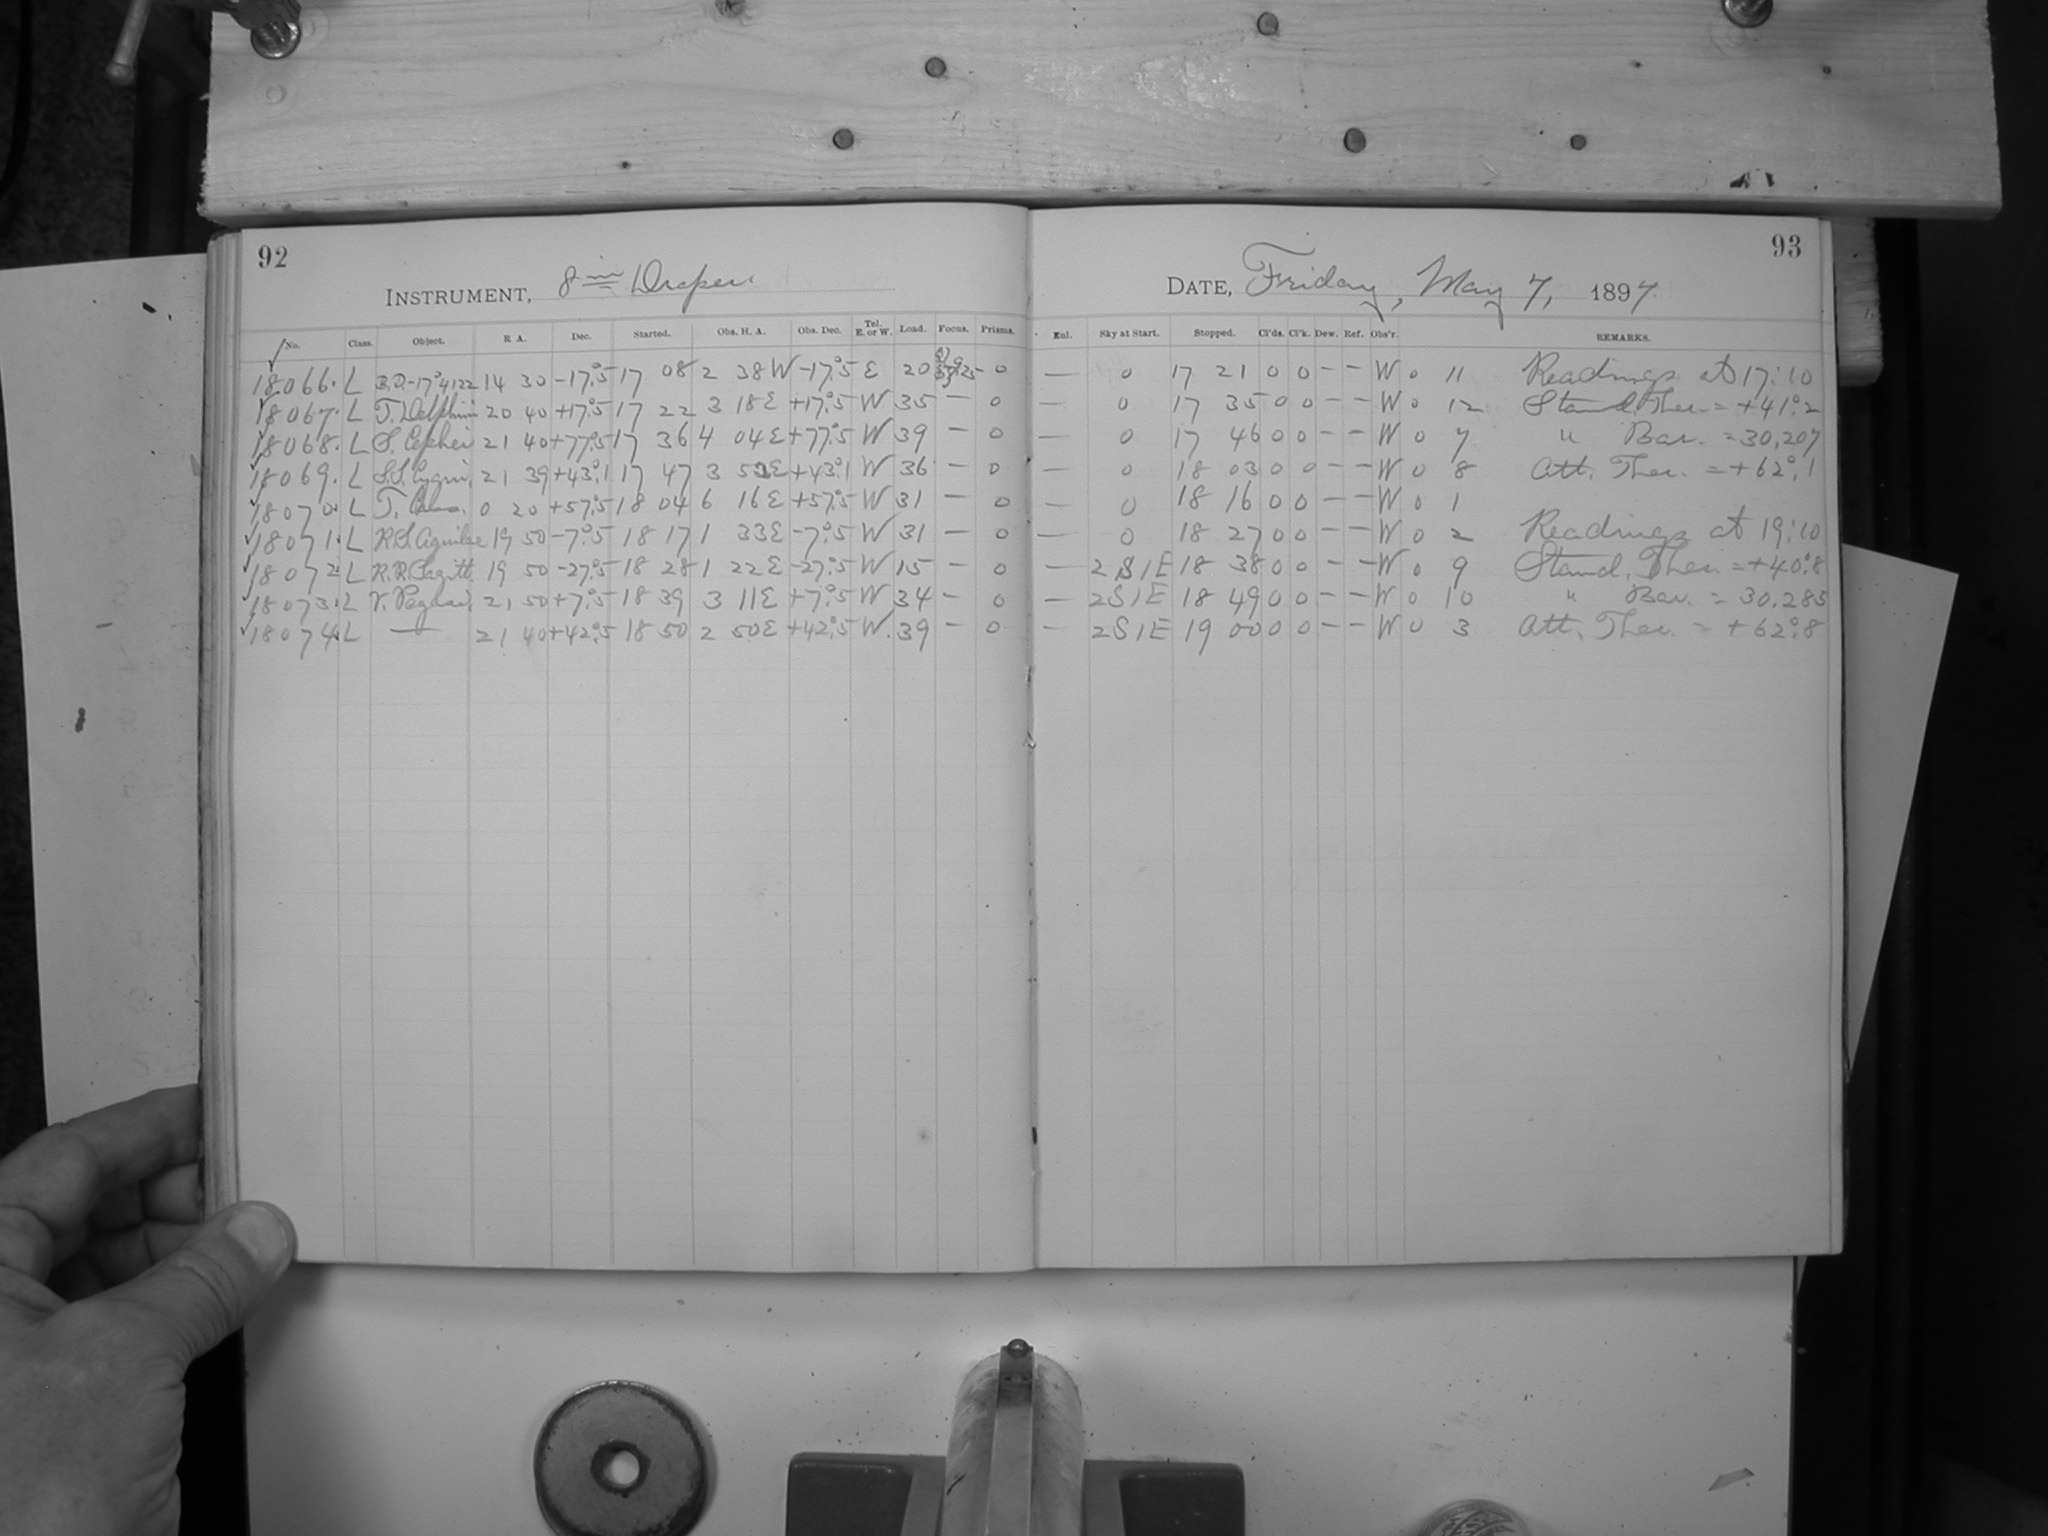 92
INSTRUMENT, 8 in Draper.
No. Class. Object. R A. Dec. Started. Obs. H. A. Obs. Dec. Tel. E. or W. Load. Focus. Prisms.
18066. L B.D.-17°4122 14 30 -17°.5 17 08 2 38W -17°.5 E 20 0
18067. L T. Delphini 20 40 +17°.5 17 22 3 18E +17°.5 W 35 — 0
18068. L S. Cephei 21 40 +77°.5 17 36 4 04E +77°.5 W 39 — 0
18069. L S.S. Cygni, 21 39 +43°.1 17 47 3 52E +43°.1 W 36 — 0
18070. L T. Cass. 0 20 +57°.5 18 04 6 16E +57°.5 W 31 — 0
18071. L R.S. Aquilae 19 50 -7°.5 18 17 1 33E -7°.5 W 31 — 0
18072. L R.R. Sagitt. 19 50 -27°.5 18 28 1 22E -27°.5 W 15 — 0
18073. L V. Pegasi, 21 50 +7°.5 18 39 3 11E +7°.5 W 34 — 0
18074. L — 21 40 +42°.5 18 50 2 50E +42°.5 W. 39 — 0
93
DATE, Friday, May 7, 1897.
Enl. Sky at Start. Stopped. Cl'ds. Cl'k. Dew. Ref. Obs'r. REMARKS.
— 0 17 21 0 0 – – W 0 11 Readings at 17:10
— 0 17 35 0 0 – – W 0 12 Stand. Ther. = +41°.2
— 0 17 46 0 0 – – W 0 7 " Bar. = 30,207
— 0 18 03 0 0 – – W 0 8 Att. Ther. = +62°.1
— 0 18 16 0 0 – – W 0 1
— 0 18 27 0 0 – – W 0 2 Readings at 19:10
— 2S1E 18 38 0 0 – – W 0 9 Stand. Ther. = +40°.8
— 2S1E 18 49 0 0 – – W 0 10 " Bar. = 30.285
— 2S1E 19 00 0 0 – – W 0 3 Att. Ther. = +62°.8